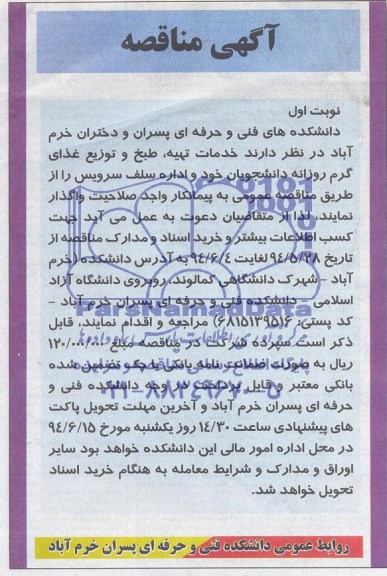 آگهی مناقصه
نوبت اول
دانشکده های فنی و حرفه ای پسران و دختران خرم
آباد در نظر دارند خدمات تهیه، طبخ و توزیع غذای
گرم روزانه دانشجویان خود و اداره سلف سرویس را از
طریق مناقصه عمومی به پیمانکار واجد صلاحیت واگذار
نمایند، لذا از متقاضیان دعوت به عمل می آید جهت
کسب اطلاعات بیشتر و خرید اسناد و مدارک مناقصه از
تاریخ ۹۴/۵/۲۸ لغایت ۹۴/۶/۴ به آدرس دانشکده (خرم
آباد – شهرک دانشگاهی کمالوند، روبروی دانشگاه آزاد
اسلامی – دانشکده فنی و حرفه ای پسران خرم آباد –
کد پستی: ۶۸۱۵۱۳۹۵۱۶) مراجعه و اقدام نمایند، قابل
ذکر است سپرده شرکت در مناقصه مبلغ ۱۲۰/۰۰۰/۰۰۰
ریال به صورت ضمانت نامه بانکی یا چک تضمین شده
بانکی معتبر و قابل پرداخت در وجه دانشکده فنی و
حرفه ای پسران خرم آباد و آخرین مهلت تحویل پاکت
های پیشنهادی ساعت ۱۴/۳۰ روز یکشنبه مورخ ۹۴/۶/۱۵
در محل اداره امور مالی این دانشکده خواهد بود سایر
اوراق و مدارک و شرایط معامله به هنگام خرید اسناد
تحویل خواهد شد.
روابط عمومی دانشکده فنی و حرفه ای پسران خرم آباد
ParsNamadData
۰۲۱-۸۸۳۴۹۶۷۰-۵